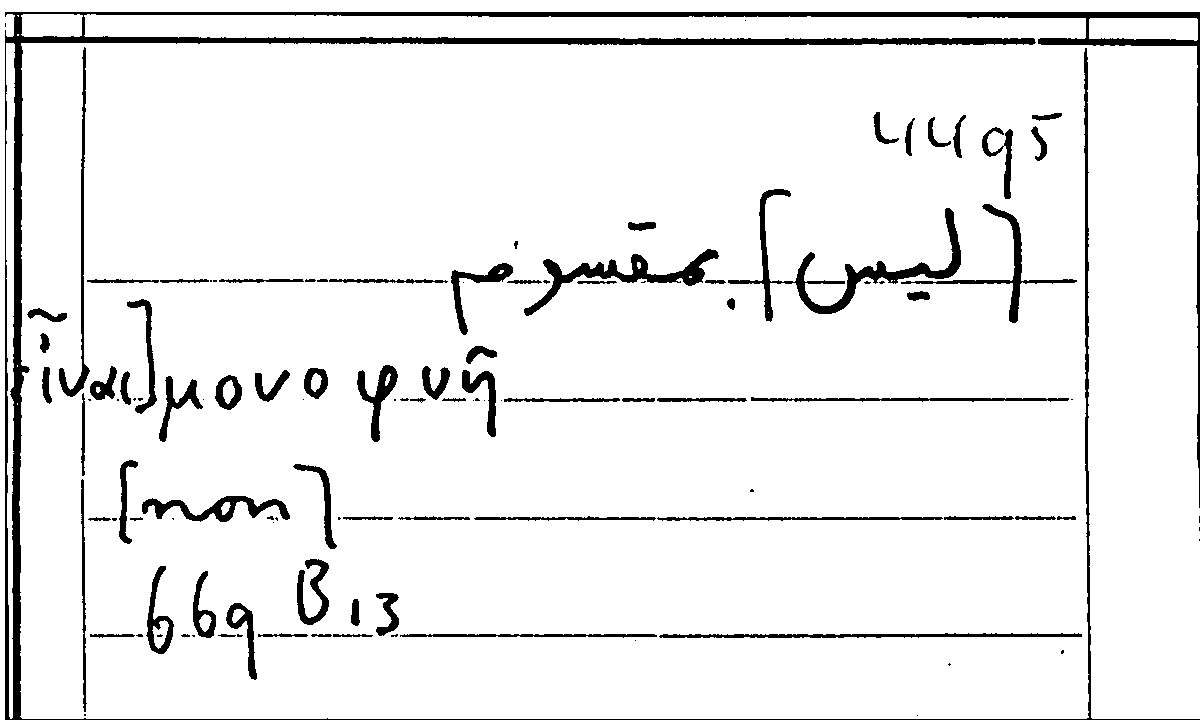 4495
[ليس] بمقسوم
εἶναι] μονοφυῆ
[non]
669 B 13